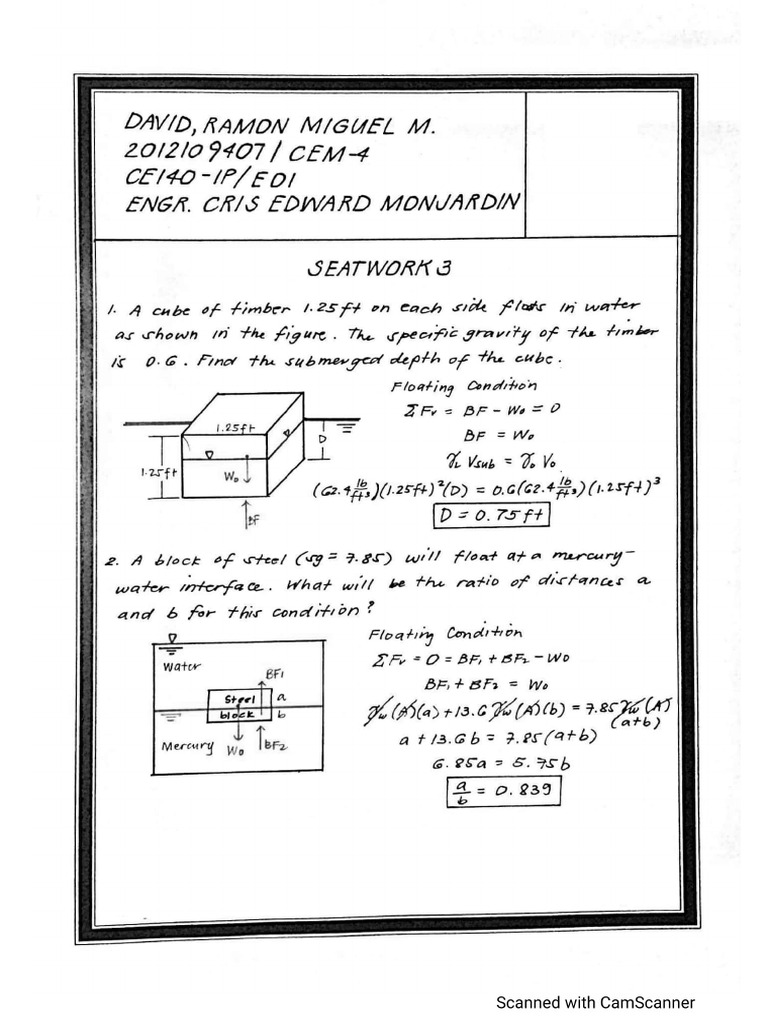 DAVID, RAMON MIGUEL M.
2012109407 / CEM-4
CE140-1P/E01
ENGR. CRIS EDWARD MONJARDIN
SEATWORK 3
1. A cube of timber 1.25ft on each side floats in water
as shown in the figure. The specific gravity of the timber
is 0.6. Find the submerged depth of the cube.
Floating Condition
ΣFv = BF - Wo = 0
BF = Wo
γL Vsub = γo Vo
(62.4 lb/ft³)(1.25ft)²(D) = 0.6(62.4 lb/ft³)(1.25ft)³
D = 0.75ft
1.25ft
D
1.25ft
Wo
BF
2. A block of steel (sg = 7.85) will float at a mercury-
water interface. What will be the ratio of distances a
and b for this condition?
Floating Condition
ΣFv = 0 = BF1 + BF2 - Wo
BF1 + BF2 = Wo
γw(A)(a) + 13.6 γw(A)(b) = 7.85 γw(A)
(a+b)
a + 13.6b = 7.85(a+b)
6.85a = 5.75b
a/b = 0.839
Water
BF1
Steel
a
block
b
Mercury
Wo
BF2
Scanned with CamScanner